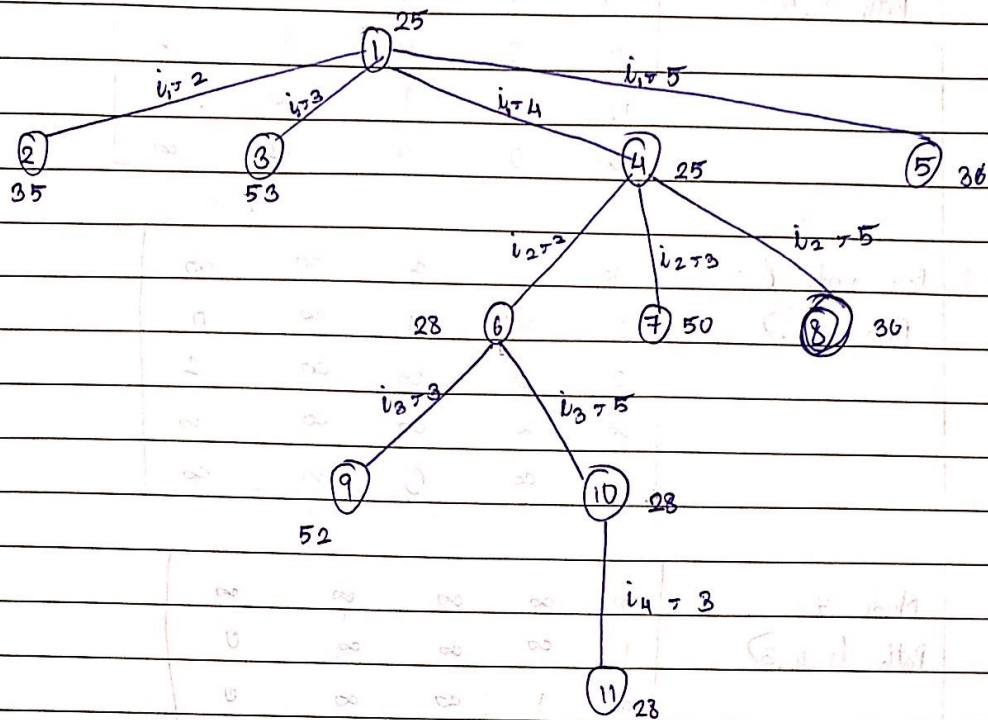 25
1
i₁ = 2 i₁ = 3 i₁ = 4 i₁ = 5
2 3 4 25 5 36
35 53
i₂ = 2 i₂ = 3 i₂ = 5
28 6 7 50 8 36
i₃ = 3 i₃ = 5
9 10 28
52
i₄ = 3
11 28